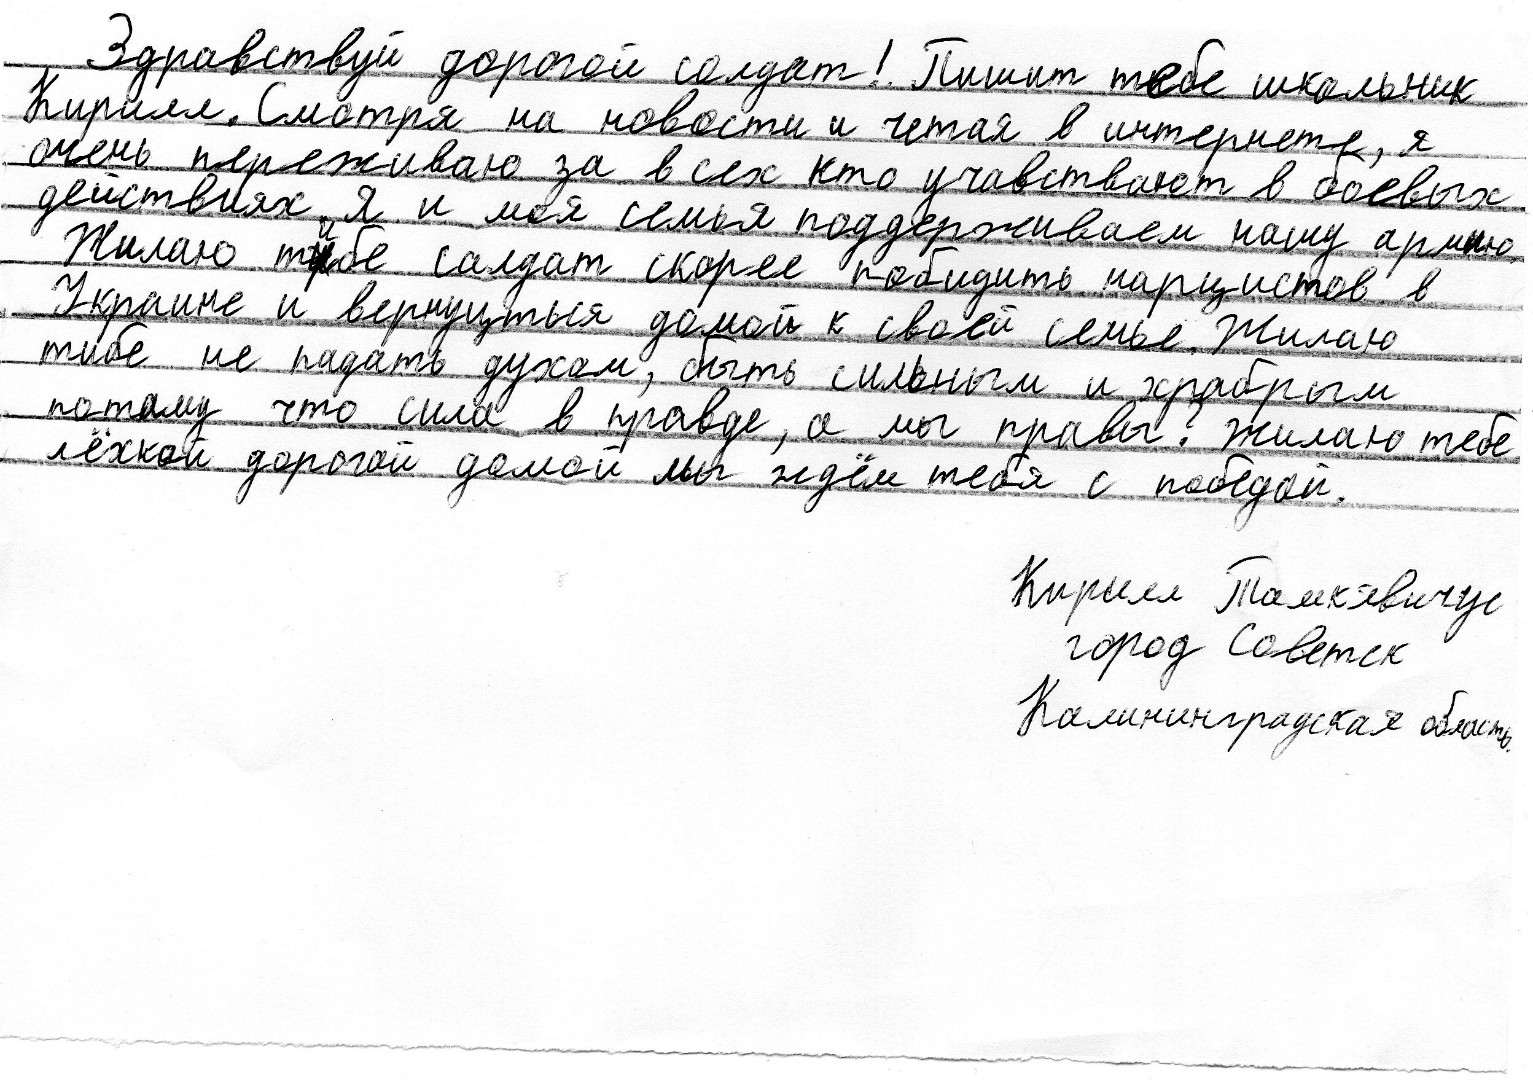 Здравствуй дорогой солдат! Пишит тебе школьник
Кирилл. Смотря на новости и четая в интернете, я
очень переживаю за всех кто учавствают в боевых
действиях. Я и моя семья поддерживаем нашу армию.
Жилаю тибе салдат скорее победить нарцистов в
Украине и вернуцться домой к своей семье. Жилаю
тибе не падать духом, быть сильным и храбрым
потому что сила в правде, а мы правы! Жилаю тебе
лёхкой дорогой домой мы ждём тебя с победой.
Кирилл Тамкявичус
город Советск
Калининградская область.